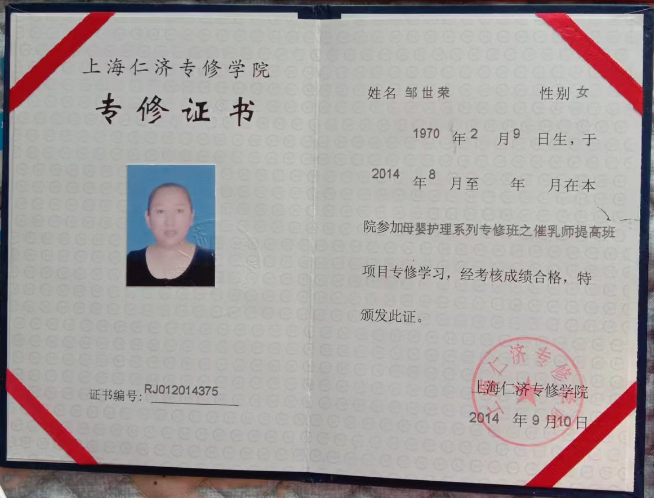 上海仁济专修学院
专修证书
证书编号：RJ012014375
姓名 邹世荣 性别 女
1970 年 2 月 9 日生，于
2014 年 8 月至 年 月在本
院参加母婴护理系列专修班之催乳师提高班
项目专修学习，经考核成绩合格，特
颁发此证。
上海仁济专修学院
2014 年 9 月 10 日
上海仁济专修学院